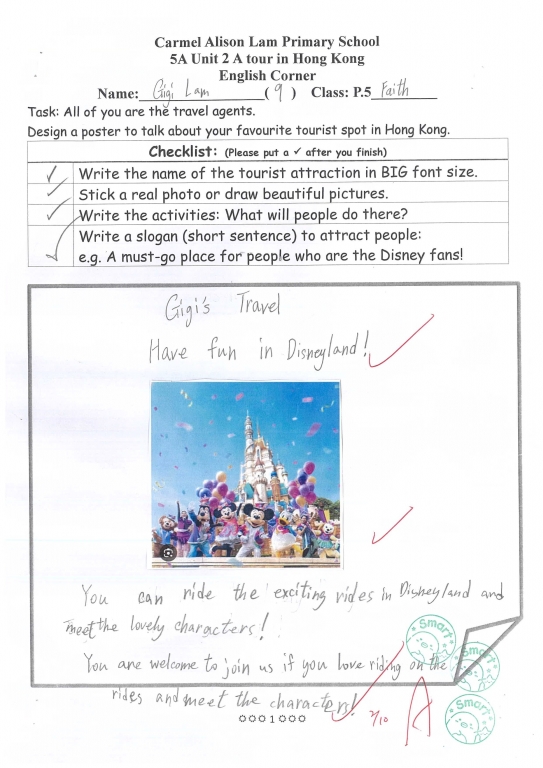 Carmel Alison Lam Primary School
5A Unit 2 A tour in Hong Kong
English Corner
Name: Gigi Lam ( 9 ) Class: P.5 Faith
Task: All of you are the travel agents.
Design a poster to talk about your favourite tourist spot in Hong Kong.
Checklist: (Please put a ✓ after you finish)
✓ Write the name of the tourist attraction in BIG font size.
✓ Stick a real photo or draw beautiful pictures.
✓ Write the activities: What will people do there?
✓ Write a slogan (short sentence) to attract people:
e.g. A must-go place for people who are the Disney fans!
Gigi's Travel
Have fun in Disneyland!
You can ride the exciting rides in Disneyland and
meet the lovely characters!
You are welcome to join us if you love riding on the
rides and meet the characters!
Smart
Smart
Smart
0001000
2/10 A